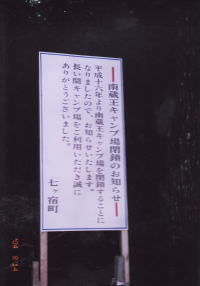 南蔵王キャンプ場閉鎖のお知らせ
平成十六年より南蔵王キャンプ場を閉鎖することに
なりましたので、お知らせいたします。
長い間キャンプ場をご利用いただき誠に
ありがとうございました。
七ヶ宿町
'04 8 14